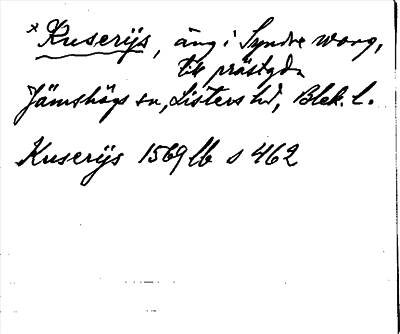 × Kuserijs, äng i Syndre wang,
till prästgdn
Jämshögs sn, Listers hd, Blek. l.
Kuserijs 1569 lb s 462